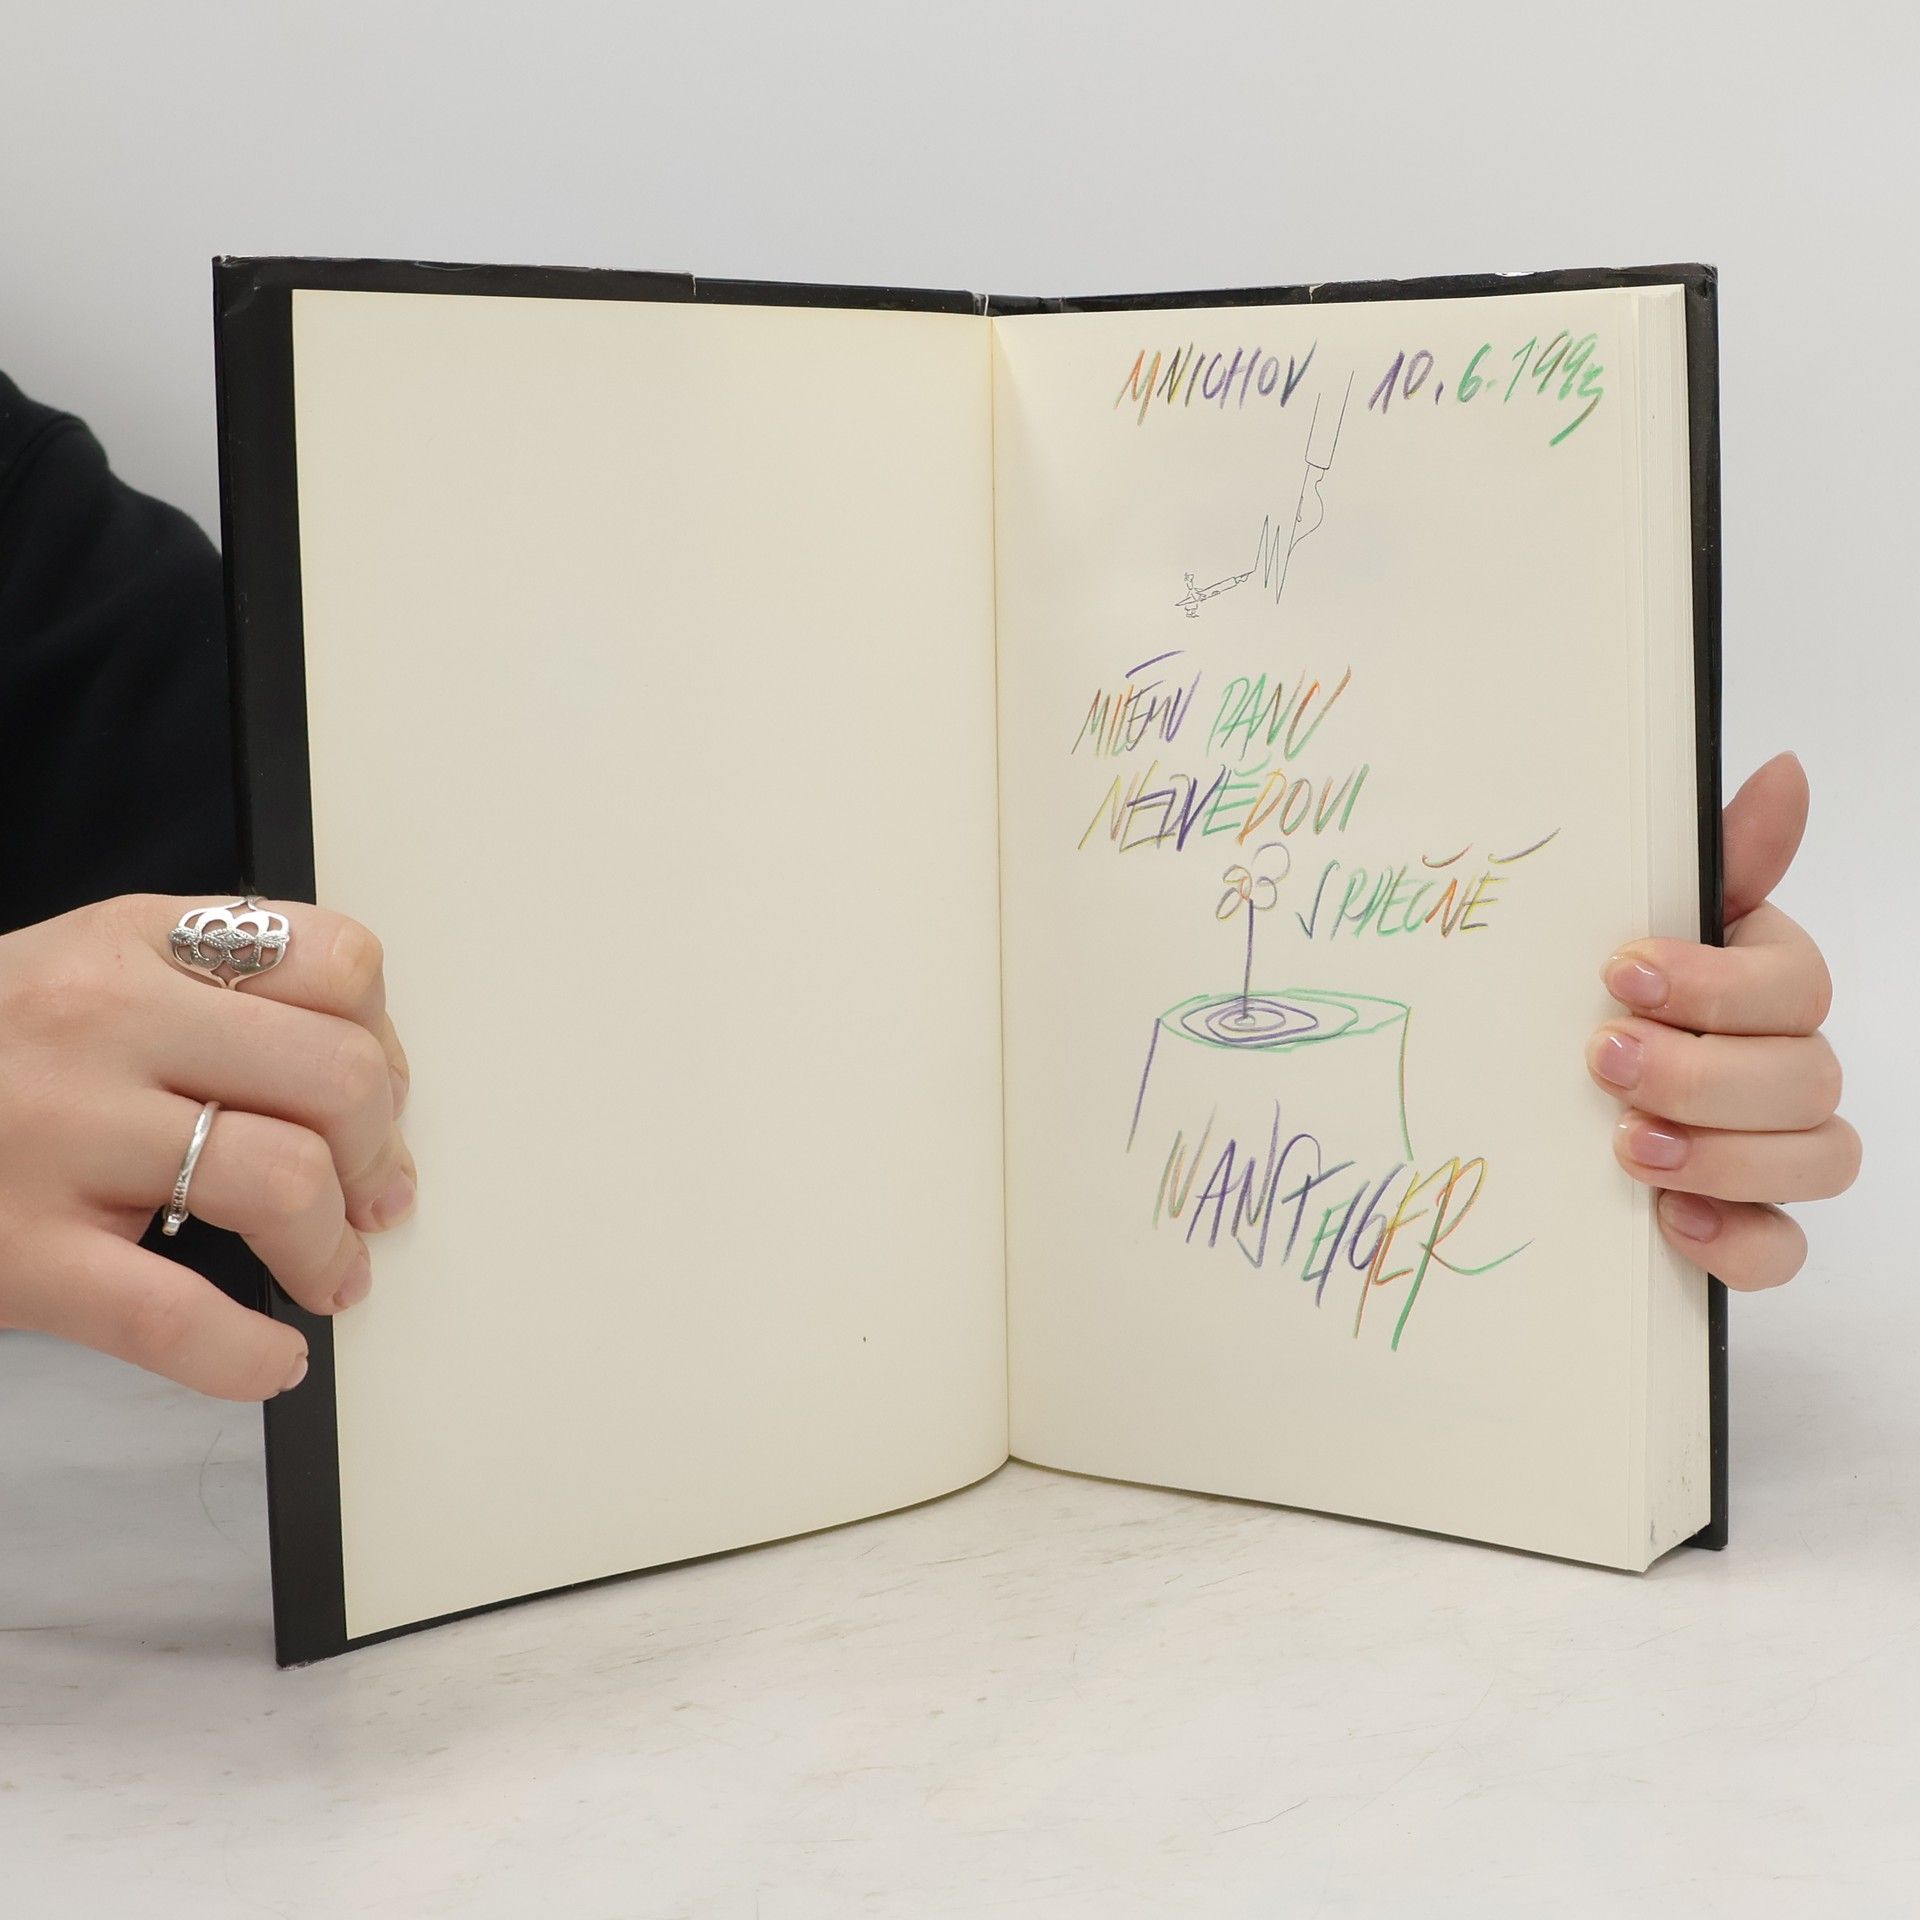 MNICHOV 10.6.1993
MILÉMU PANU
NEDVĚDOVI
SRDEČNĚ
IVAN STEIGER